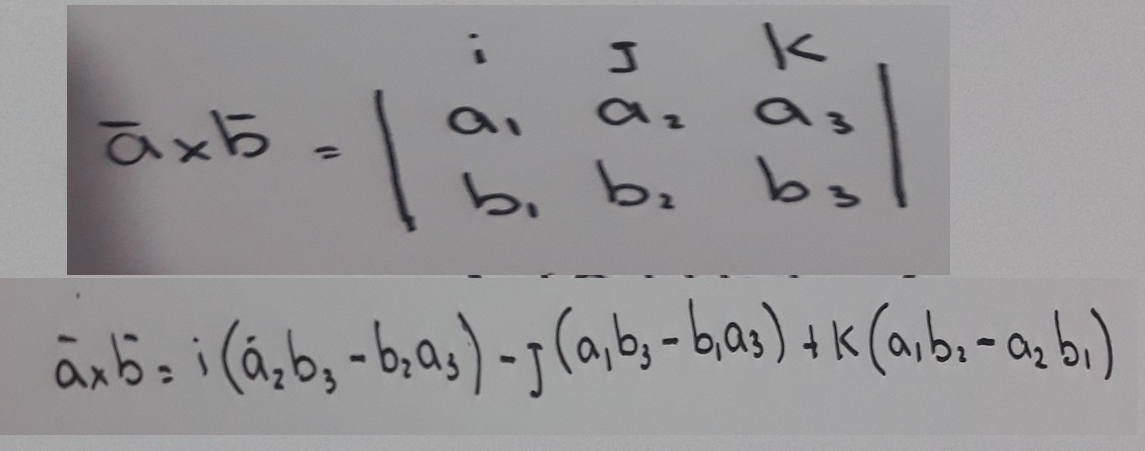 i J K
a̅ x b̅ = | a₁ a₂ a₃ |
b₁ b₂ b₃
a̅ x b̅ = i(a₂b₃ - b₂a₃) - J(a₁b₃ - b₁a₃) + K(a₁b₂ - a₂b₁)